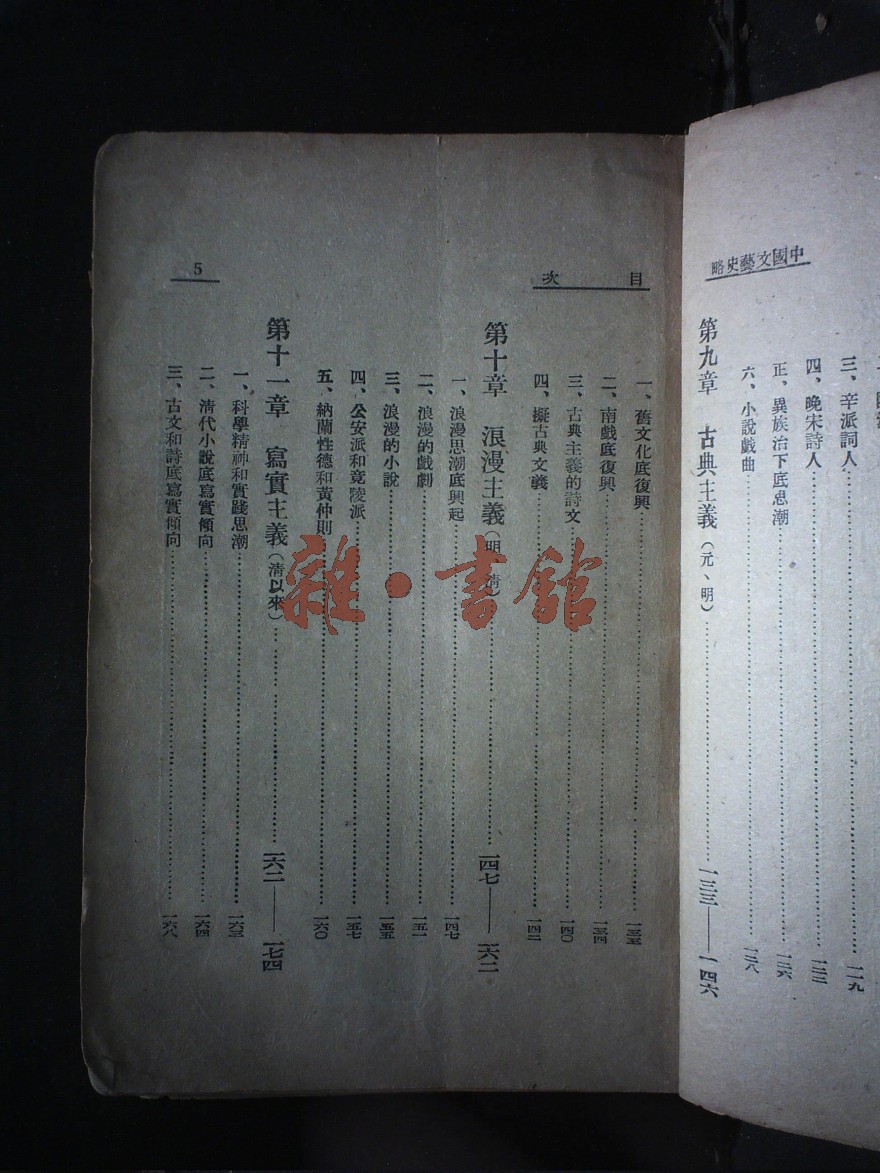 中國文藝史略
三、辛派詞人……一一九
四、晚宋詩人……一二三
正、異族治下底思潮……一二六
六、小說戲曲……一二八
第九章 古典主義（元、明）……一三三——一四六
目次
一、舊文化底復興……一三三
二、南戲底復興……一三四
三、古典主義的詩文……一四〇
四、擬古典文義……一四二
第十章 浪漫主義（明、清）……一四七——一六二
一、浪漫思潮底興起……一四七
二、浪漫的戲劇……一五一
三、浪漫的小說……一五五
四、公安派和竟陵派……一五七
五、納蘭性德和黃仲則……一六〇
第十一章 寫實主義（清以來）……一六二——一七四
一、科學精神和實踐思潮……一六三
二、清代小說底寫實傾向……一六四
三、古文和詩底寫實傾向……一六八
5
雜·書館